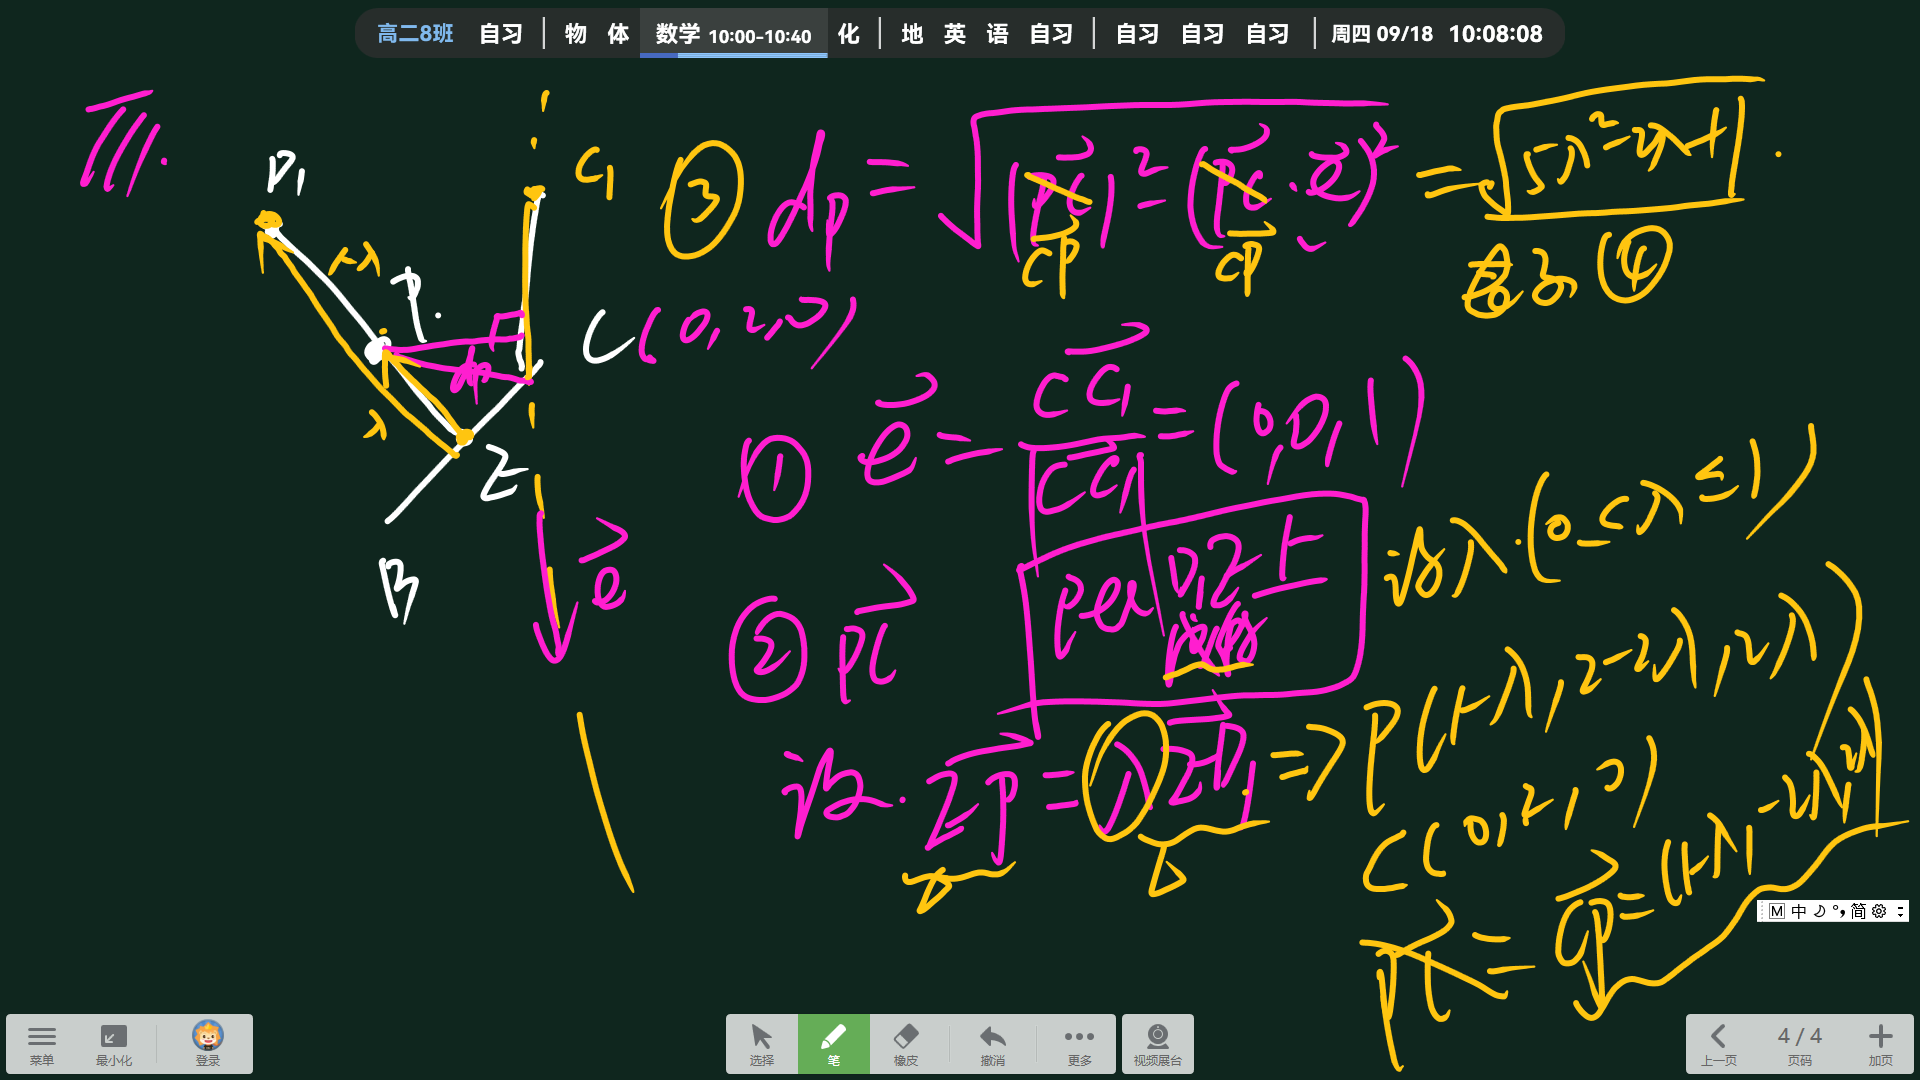 高二8班 自习 | 物 体 数学 10:00-10:40 化 | 地 英 语 自习 | 自习 自习 自习 | 周四 09/18 10:08:08
D₁
C₁
1-λ
P
dp
C(0,2,0)
λ
E
B
e
③ dp = √(|PC|² - (PC·e)²) = √(5λ²-2λ+1)
CP CP
④
① e = CC₁/|CC₁| = (0,0,1)
② PC
P∈D₁E上
设λ.(0≤λ≤1)
设. EP = λED₁ => P(1-λ, 2-2λ, 2λ)
C(0,2,0)
PC = CP = (1-λ, -2λ, 2λ)
M 中 简
菜单 最小化 登录
选择 笔 橡皮 撤消 更多 视频展台
4 / 4
上一页 页码 加页